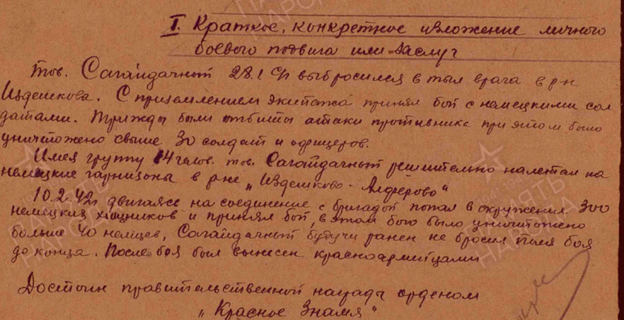 I. Краткое, конкретное изложение личного
боевого подвига или заслуг
Тов. Сагайдачный 28.1 с/г выбросился в тыл врага в р-н
Издешкова. С приземлением экипажа принял бой с немецкими сол
датами. Трижды были отбиты атаки противника при этом было
уничтожено свыше 30 солдат и офицеров.
Имея группу 14 челов. тов. Сагайдачный решительно налетал на
немецкие гарнизоны в р-не „Издешково - Алферово"
10.2.42г двигаясь на соединение с бригадой попал в окружение 300
немецких хищников и принял бой в этом бою было уничтожено
больше 40 немцев, Сагайдачный будучи ранен не бросил поля боя
до конца. После боя был вынесен красноармейцами
Достоин правительственной награды орденом
„Красное Знамя"